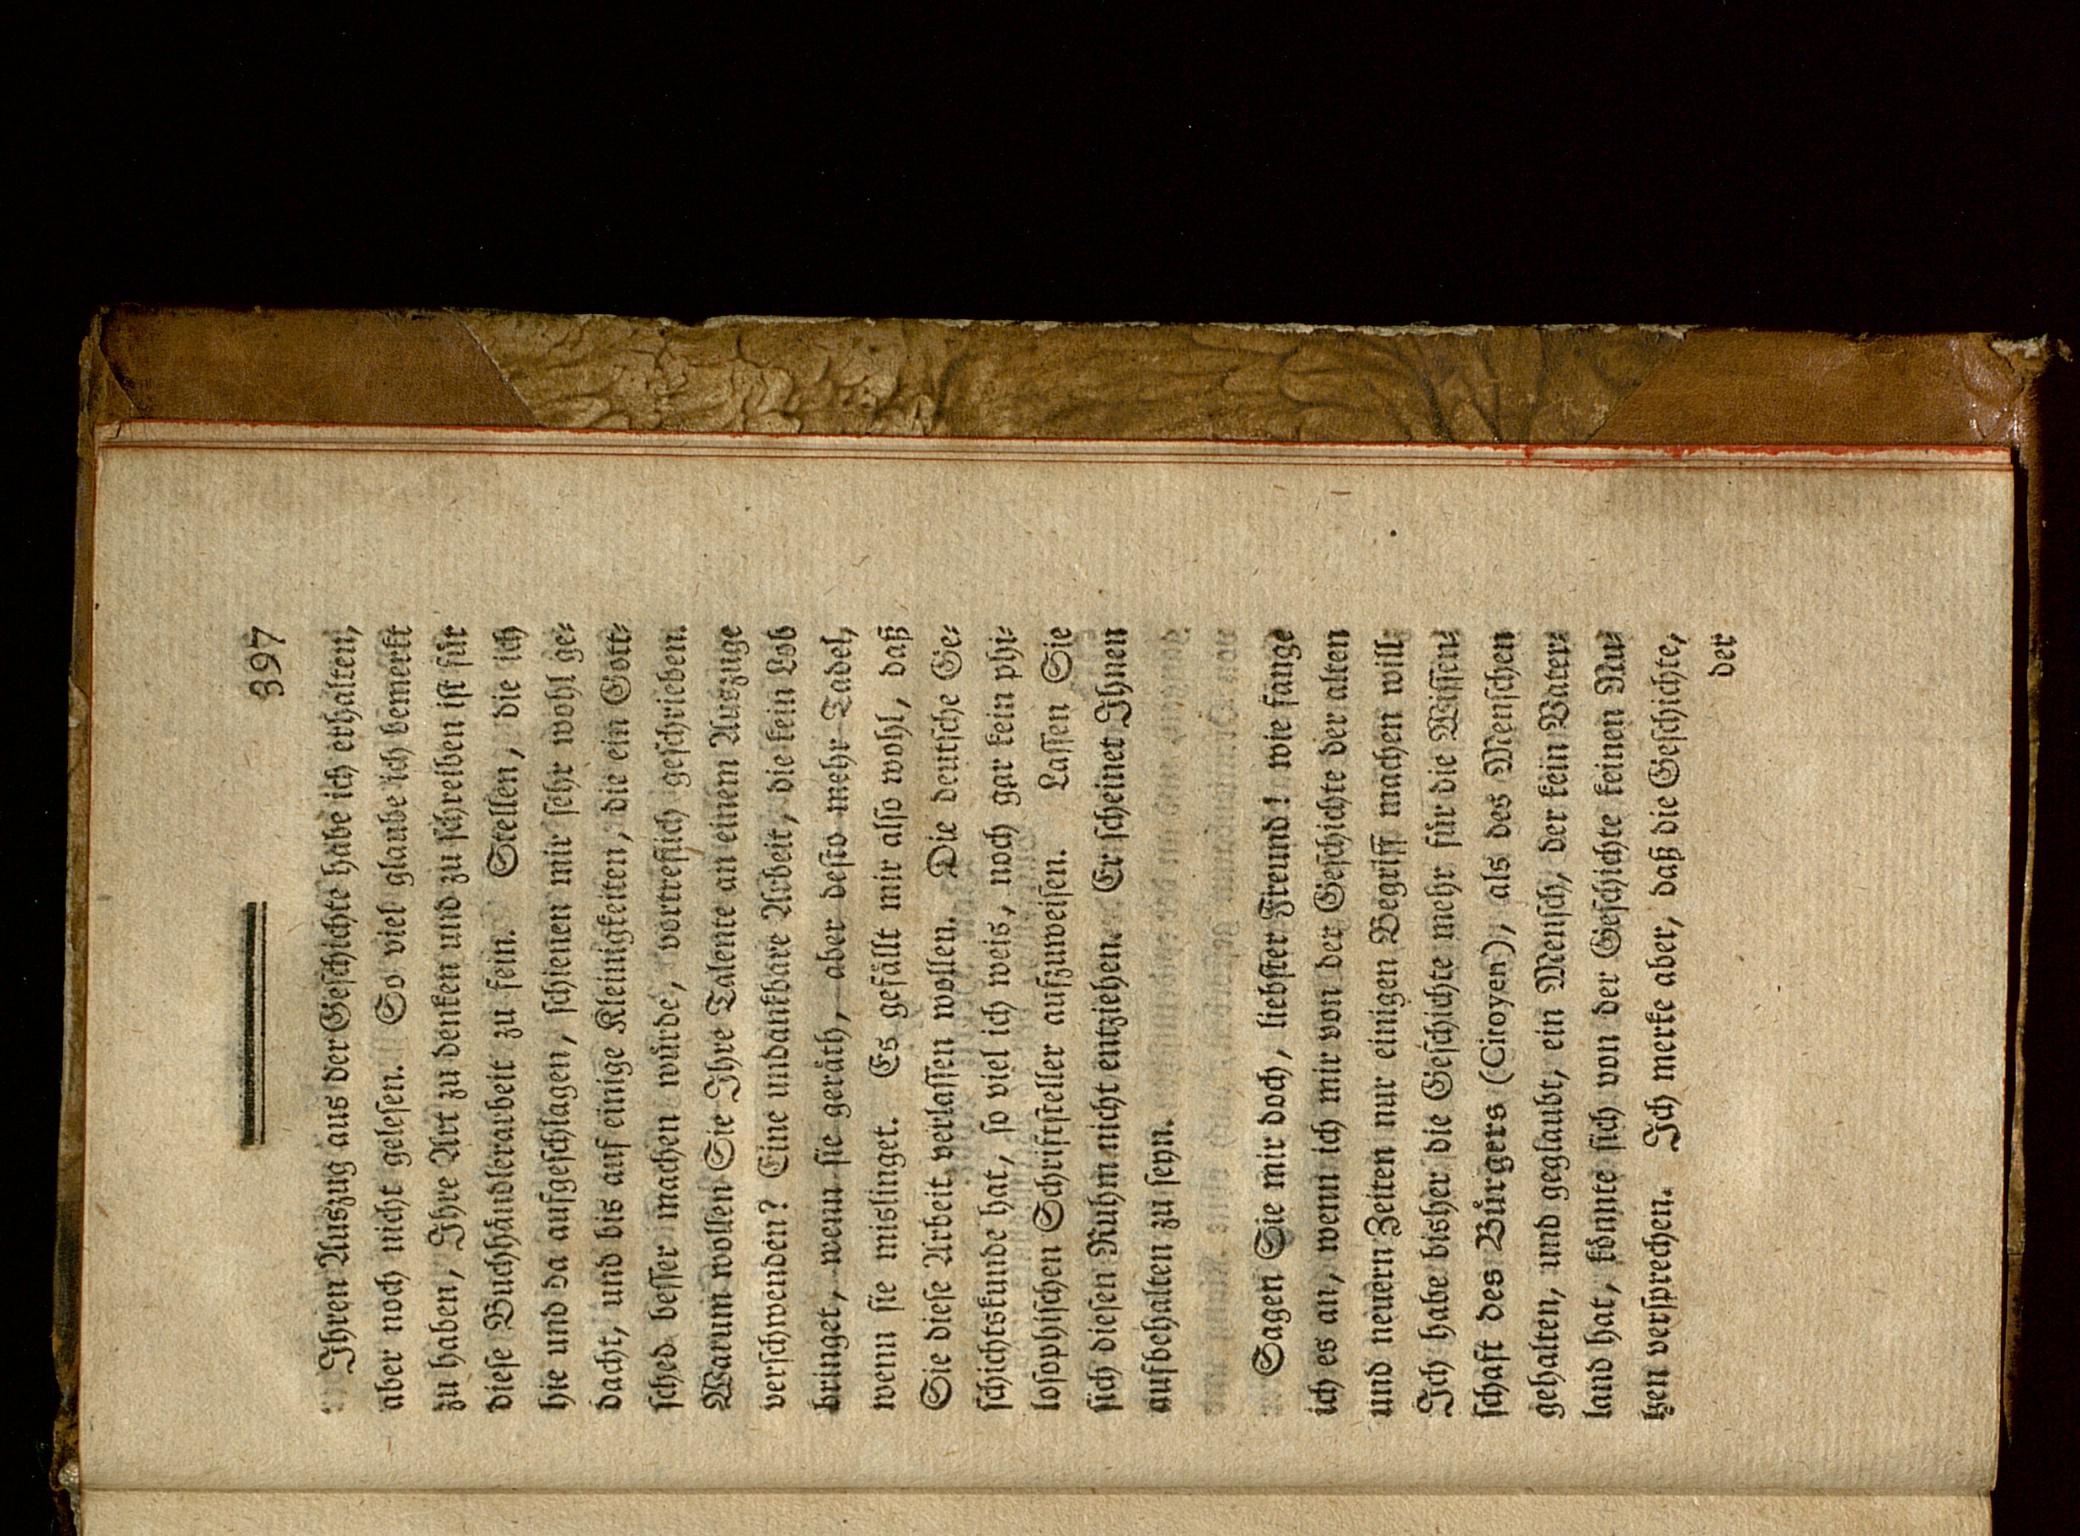 397
Ihren Auszug aus der Geschichte habe ich erhalten,
aber noch nicht gelesen. So viel glaube ich bemerkt
zu haben, Ihre Art zu denken und zu schreiben ist für
diese Buchhändlerarbeit zu fein. Stellen, die ich
hie und da aufgeschlagen, schienen mir sehr wohl ge⸗
dacht, und bis auf einige Kleinigkeiten, die ein Gott⸗
sched besser machen würde, vortreflich geschrieben.
Warum wollen Sie Ihre Talente an einem Auszuge
verschwenden? Eine undankbare Arbeit, die kein Lob
bringet, wenn sie geräth, aber desto mehr Tadel,
wenn sie mislinget. Es gefällt mir also wohl, daß
Sie diese Arbeit verlassen wollen. Die deutsche Ge⸗
schichtskunde hat, so viel ich weis, noch gar kein phi⸗
losophischen Schriftsteller aufzuweisen. Lassen Sie
sich diesen Ruhm nicht entziehen. Er scheinet Ihnen
aufbehalten zu seyn.
Sagen Sie mir doch, liebster Freund! wie fange
ich es an, wenn ich mir von der Geschichte der alten
und neuern Zeiten nur einigen Begriff machen will.
Ich habe bisher die Geschichte mehr für die Wissen⸗
schaft des Bürgers (Citoyen), als des Menschen
gehalten, und geglaubt, ein Mensch, der kein Vater⸗
land hat, könnte sich von der Geschichte keinen Nu⸗
tzen versprechen. Ich merke aber, daß die Geschichte,
der